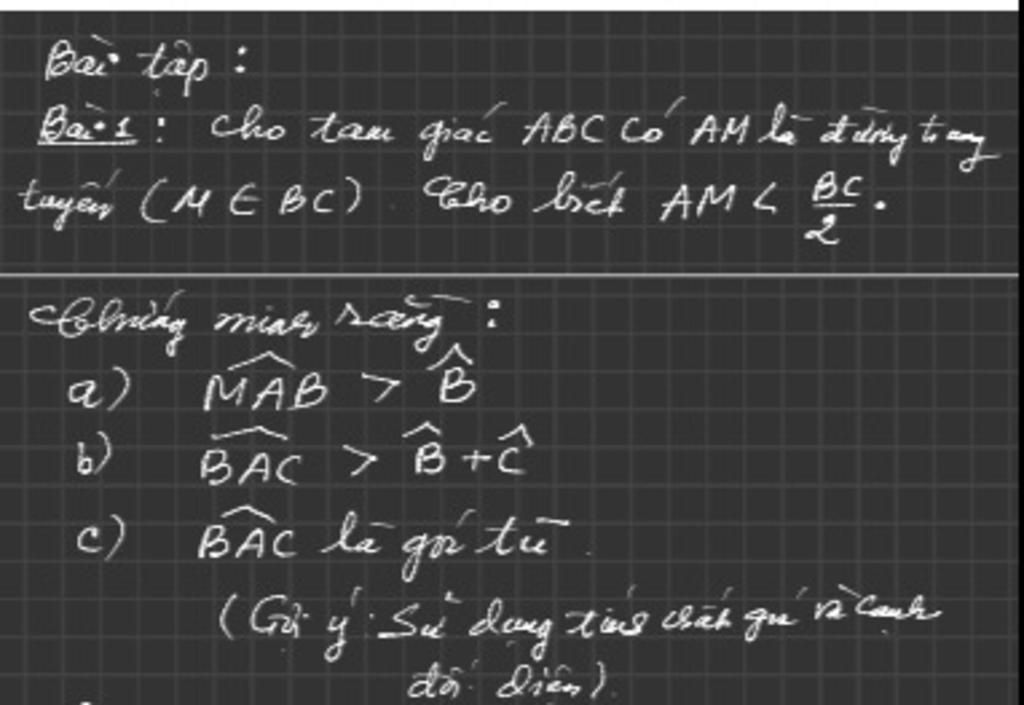 Bài tập :
Bài 1 : Cho tam giác ABC có AM là đường trung
tuyến (M ∈ BC). Cho biết AM < BC/2.
Chứng minh rằng :
a) \widehat{MAB} > \widehat{B}
b) \widehat{BAC} > \widehat{B} + \widehat{C}
c) \widehat{BAC} là góc tù.
(Gợi ý : Sử dụng tính chất góc và cạnh
đối diện).